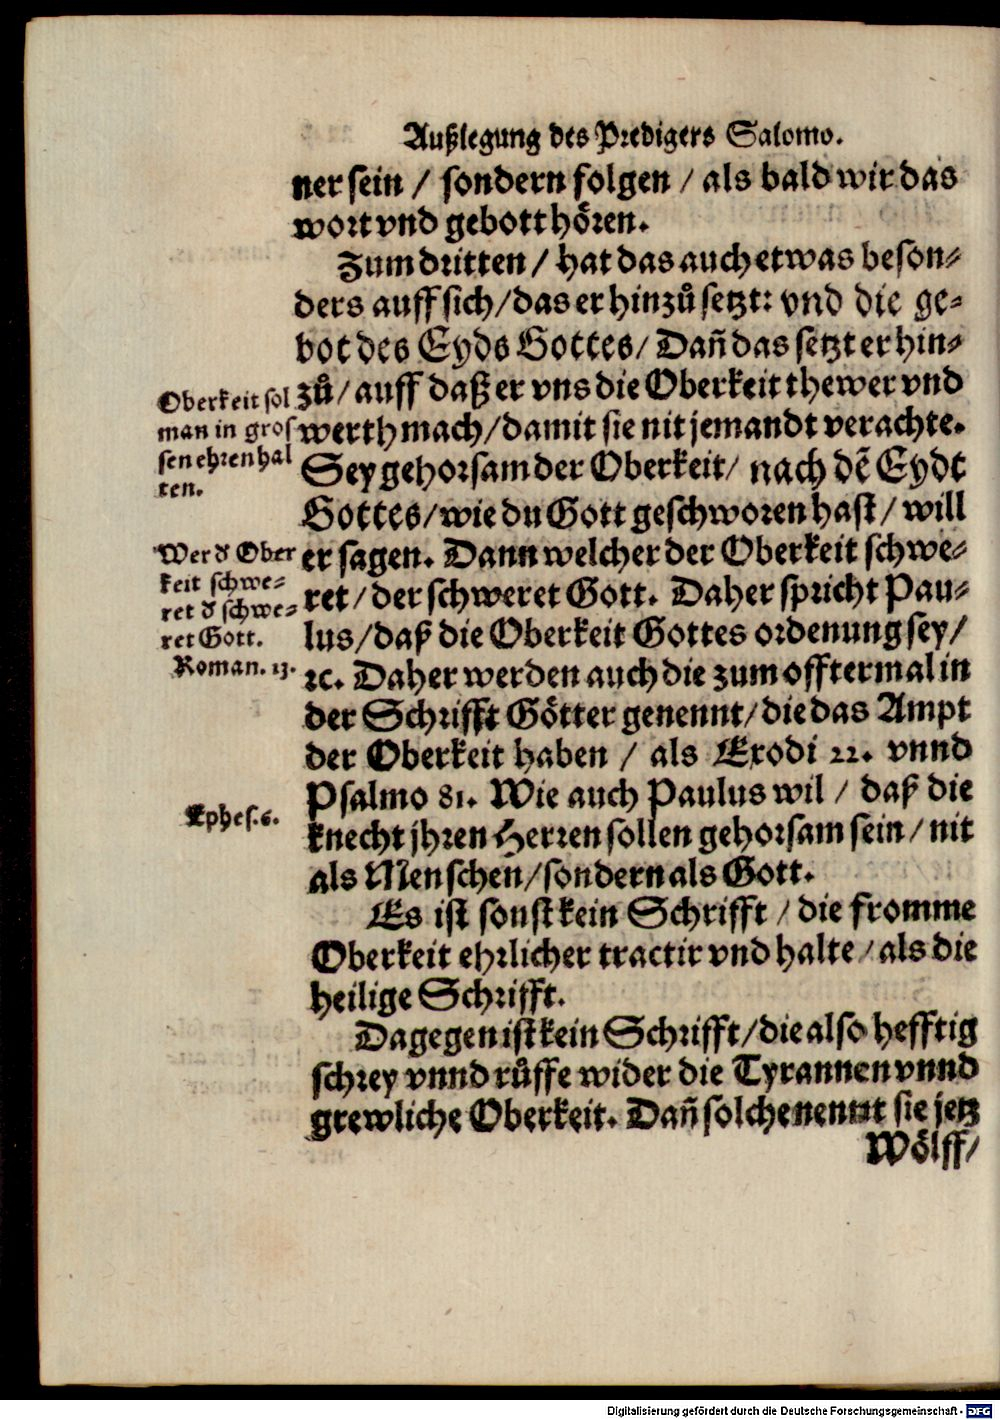 Außlegung des Predigers Salomo.
ner sein / sondern folgen / als bald wir das
wort vnd gebott hören.
Zum dritten / hat das auch etwas beson⸗
ders auff sich / das er hinzů setzt: vnd die ge⸗
bot des Eyds Gottes / Dañ das setzt er hin⸗
zů / auff daß er vns die Oberkeit thewer vnd
werth mach / damit sie nit jemandt verachte.
Sey gehorsam der Oberkeit / nach dẽ Eydt
Gottes / wie du Gott geschworen hast / will
er sagen. Dann welcher der Oberkeit schwe⸗
ret / der schweret Gott. Daher spricht Pau⸗
lus / daß die Oberkeit Gottes ordenung sey /
ꝛc. Daher werden auch die zum offtermal in
der Schrifft Götter genennt / die das Ampt
der Oberkeit haben / als Exodi 22. vnnd
Psalmo 81. Wie auch Paulus wil / daß die
knecht jhren Herren sollen gehorsam sein / nit
als Menschen / sondern als Gott.
Es ist sonst kein Schrifft / die fromme
Oberkeit ehrlicher tractir vnd halte / als die
heilige Schrifft.
Dagegen ist kein Schrifft / die also hefftig
schrey vnnd růffe wider die Tyrannen vnnd
grewliche Oberkeit. Dañ solche nennt sie jetz
Wölff /
Oberkeit sol
man in gros
sen ehren hal
ten.
Wer d Ober
keit schwe⸗
ret d schwe⸗
ret Gott.
Roman. 13.
Ephes. 6.
Digitalisierung gefördert durch die Deutsche Forschungsgemeinschaft - DFG